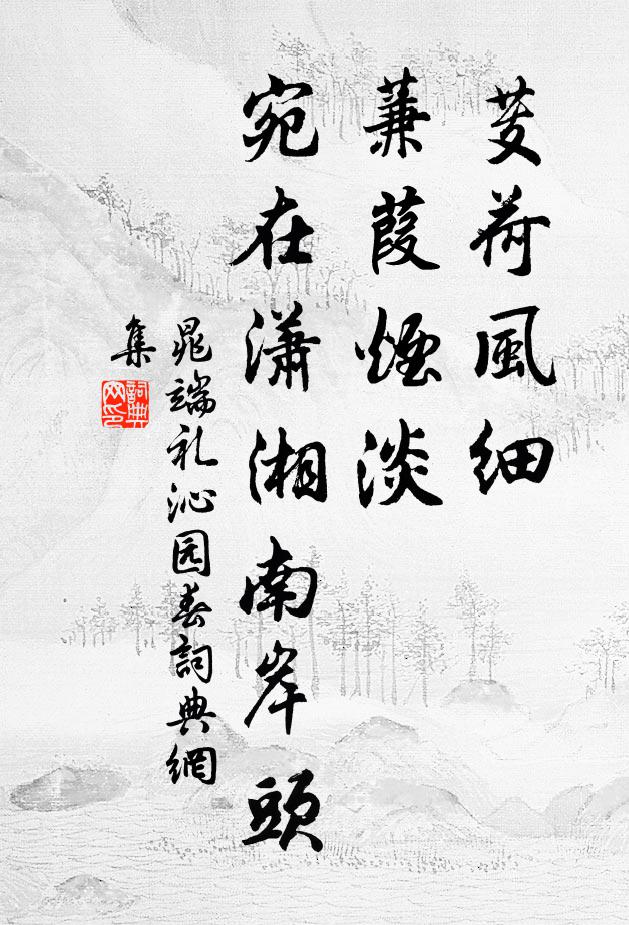 芰荷風細
蒹葭煙淡
宛在瀟湘南岸頭
晁端礼沁园春詞典網
集
詞典
网印